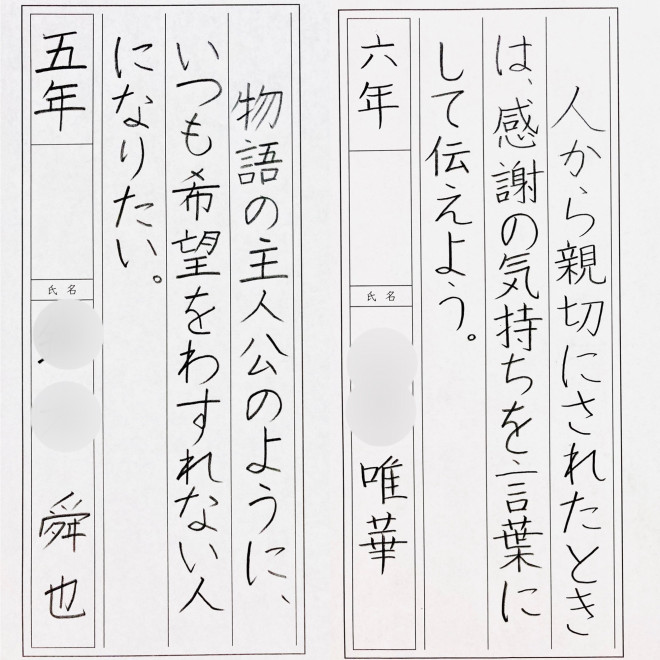 人から親切にされたとき
は、感謝の気持ちを言葉に
して伝えよう。
六年
氏名
唯華
物語の主人公のように、
いつも希望をわすれない人
になりたい。
五年
氏名
舜也